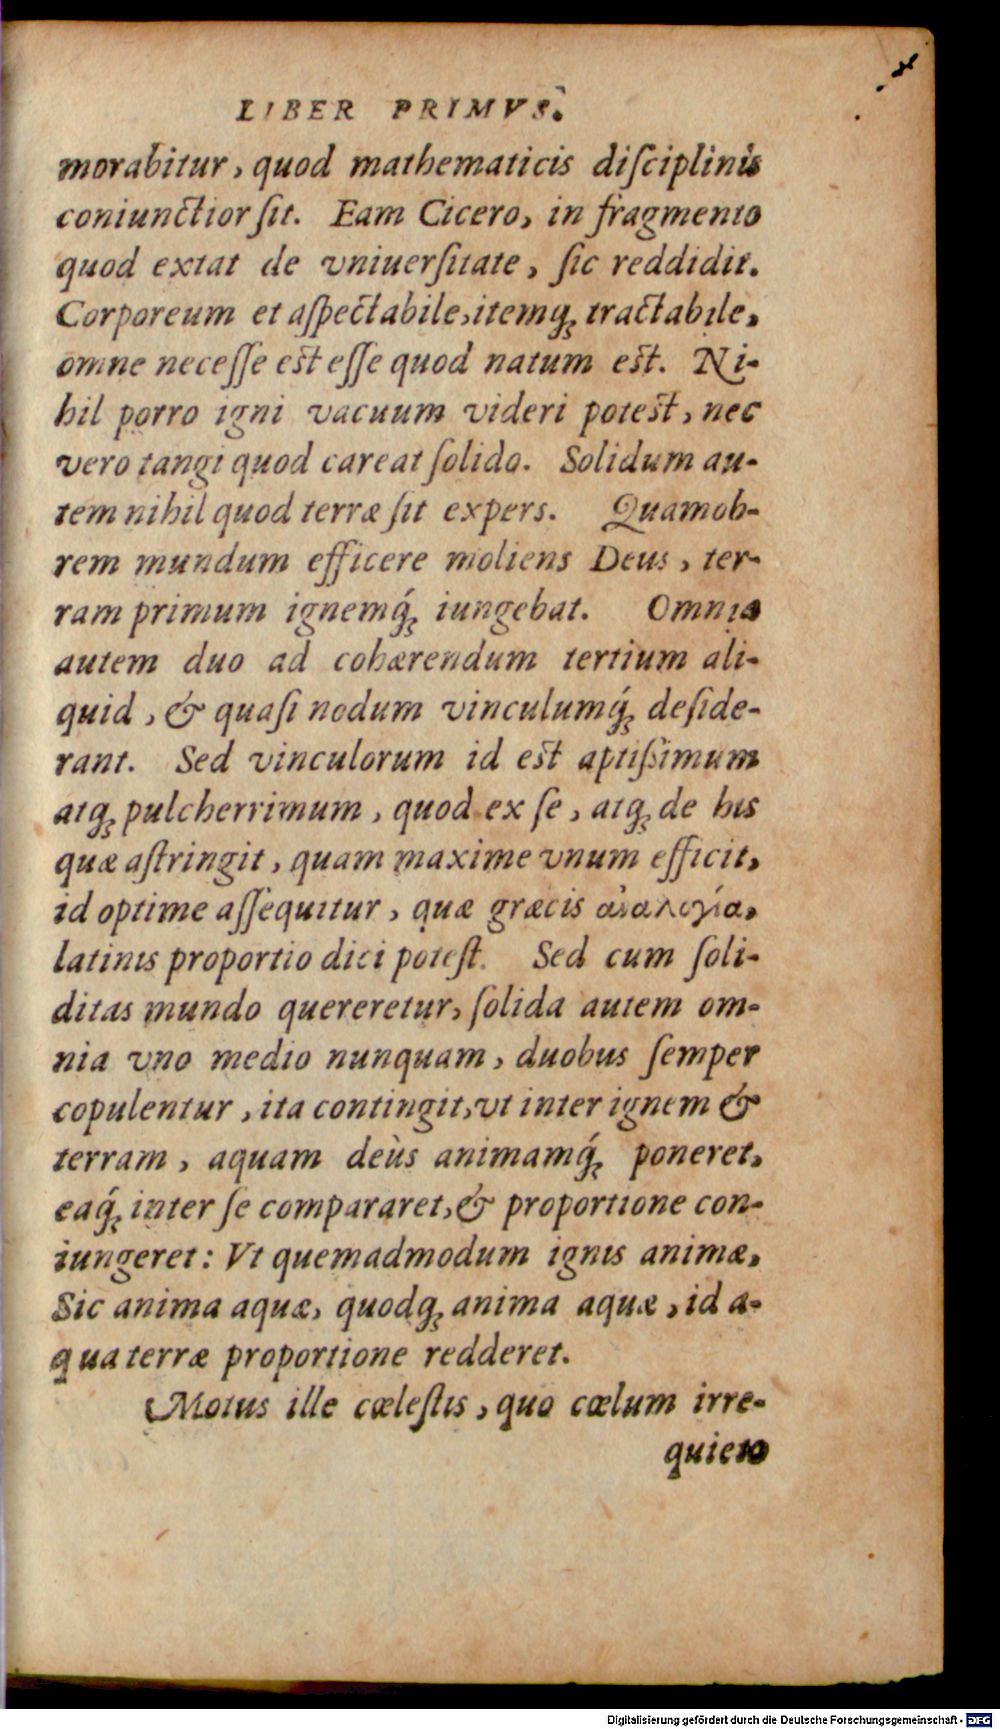 LIBER PRIMVS.
morabitur, quod mathematicis diſciplinis
coniunctior ſit. Eam Cicero, in fragmento
quod extat de vniuerſitate, ſic reddidit.
Corporeum et aſpectabile, itemq́ꝫ tractabile,
omne neceſſe est eſſe quod natum est. Ni-
hil porro igni vacuum videri potest, nec
vero tangi quod careat ſolido. Solidum au-
tem nihil quod terræ ſit expers. Quamob-
rem mundum efficere moliens Deus, ter-
ram primum ignemq́ꝫ iungebat. Omnia
autem duo ad cohærendum tertium ali-
quid, & quaſi nodum vinculumq́ꝫ deſide-
rant. Sed vinculorum id est aptiſſimum
atqꝫ pulcherrimum, quod ex ſe, atqꝫ de his
quæ aſtringit, quam maxime vnum efficit,
id optime aſſequitur, quæ græcis ἀναλογία,
latinis proportio dici poteſt. Sed cum ſoli-
ditas mundo quereretur, ſolida autem om-
nia vno medio nunquam, duobus ſemper
copulentur, ita contingit, vt inter ignem &
terram, aquam deùs animamq́ꝫ poneret,
eaq́ꝫ inter ſe compararet, & proportione con-
iungeret: Vt quemadmodum ignis animæ,
Sic anima aquæ, quodqꝫ anima aquæ, id a-
qua terræ proportione redderet.
Motus ille cæleſtis, quo cælum irre-
quieto
Digitalisierung gefördert durch die Deutsche Forschungsgemeinschaft - DFG